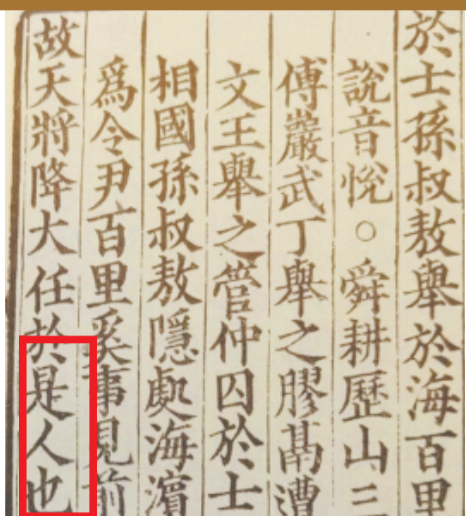 於士孫叔敖舉於海百里
說音悅○舜耕歷山三
傅巖武丁舉之膠鬲遭
文王舉之管仲囚於士
相國孫叔敖隱處海濱
爲令尹百里奚事見前
故天將降大任於是人也